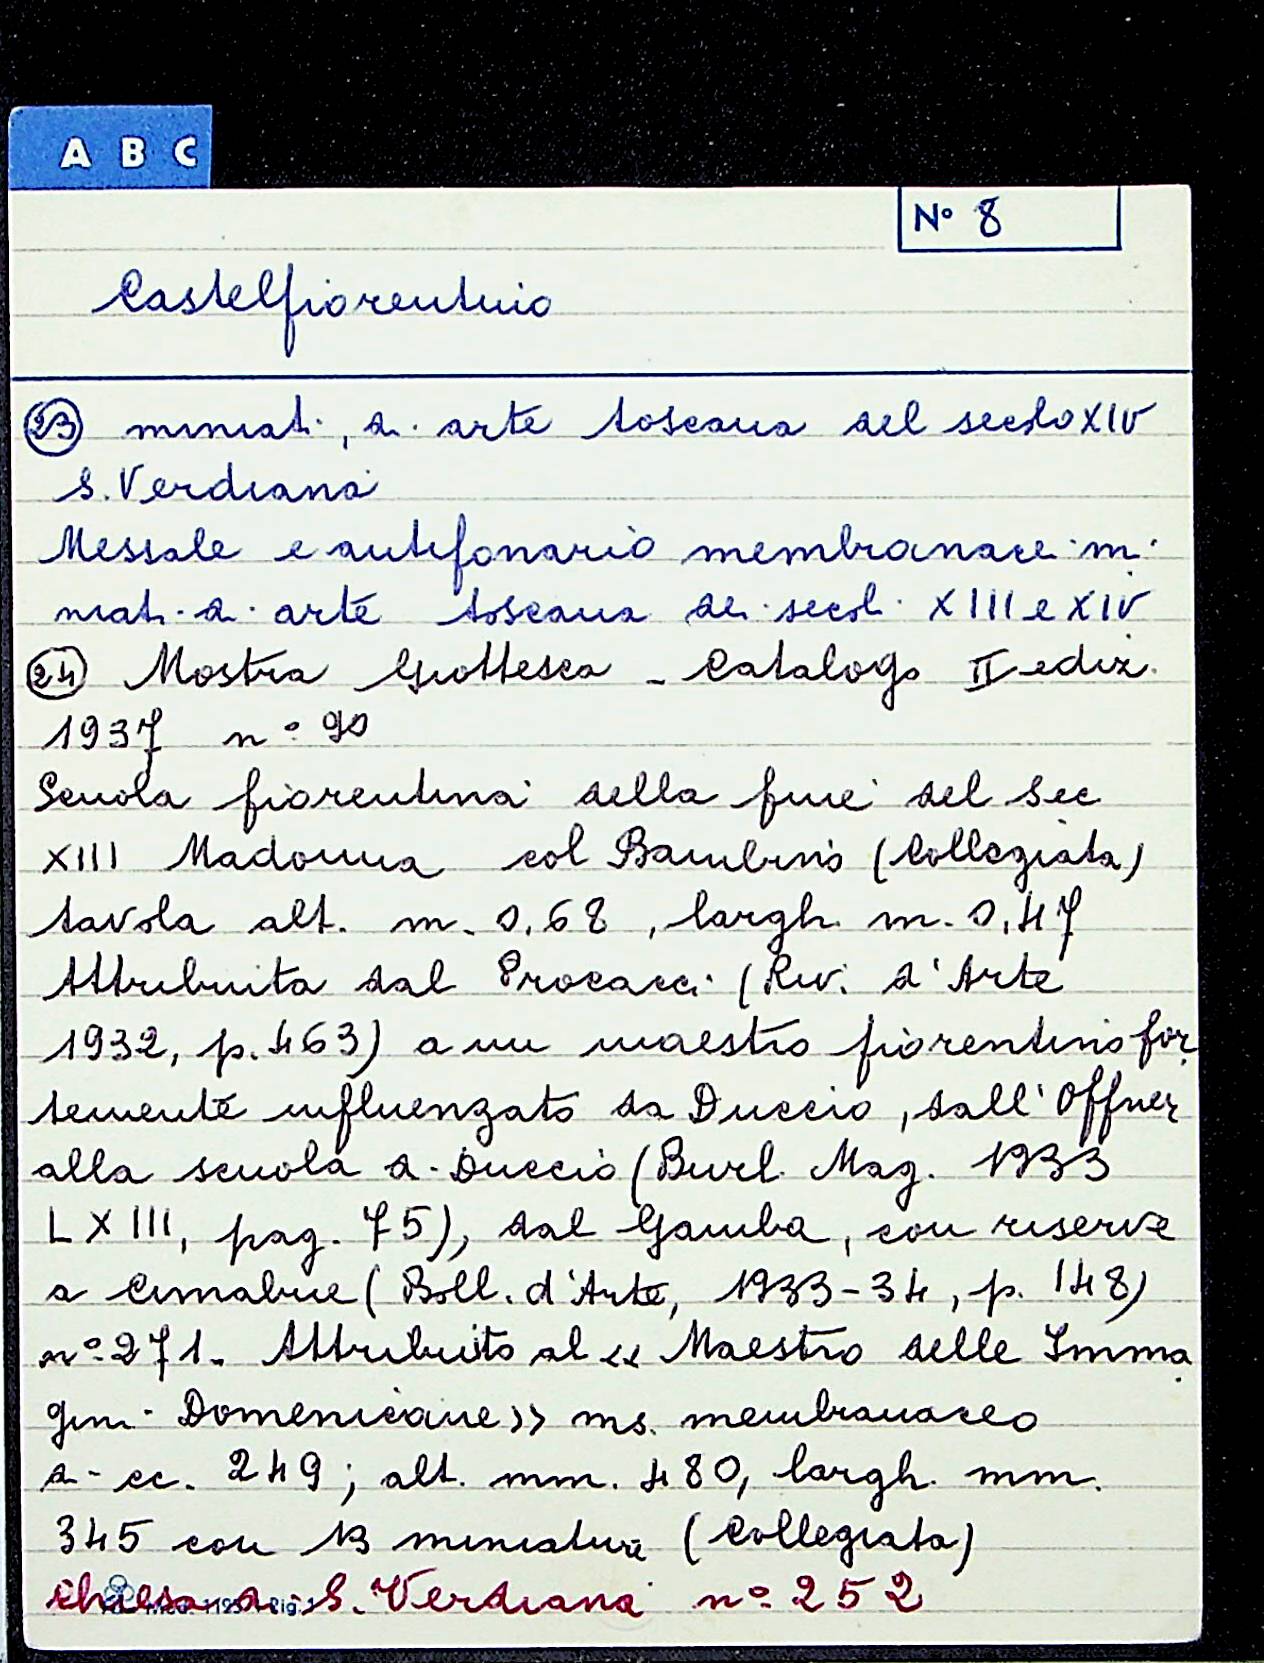 A B C
N° 8
Castelfiorentino
23 miniati, di arte toscana del secolo XIV
S. Verdiana
Messale e antifonario membranacei mi
niati di arte toscana dei secoli XIII e XIV
24 Mostra Giottesca - Catalogo II ediz.
1937 n° 90
Scuola fiorentina della fine del sec
XIII Madonna col Bambino (Collegiata)
tavola alt. m. 0,68, largh. m. 0,47
Attribuita dal Procacci (Riv. d'Arte
1932, p. 463) a un maestro fiorentino for
temente influenzato da Duccio, dall'Offner
alla scuola di Duccio (Burl. Mag. 1933
LXIII, pag. 75), dal Gamba, con riserve
a Cimabue (Boll. d'Arte, 1933-34, p. 148)
n° 271. Attribuito al «Maestro delle Imma
gini Domenicane» ms. membranaceo
di cc. 249; alt. mm. 480, largh. mm.
345 con 13 miniature (Collegiata)
Chiesa di S. Verdiana n° 252